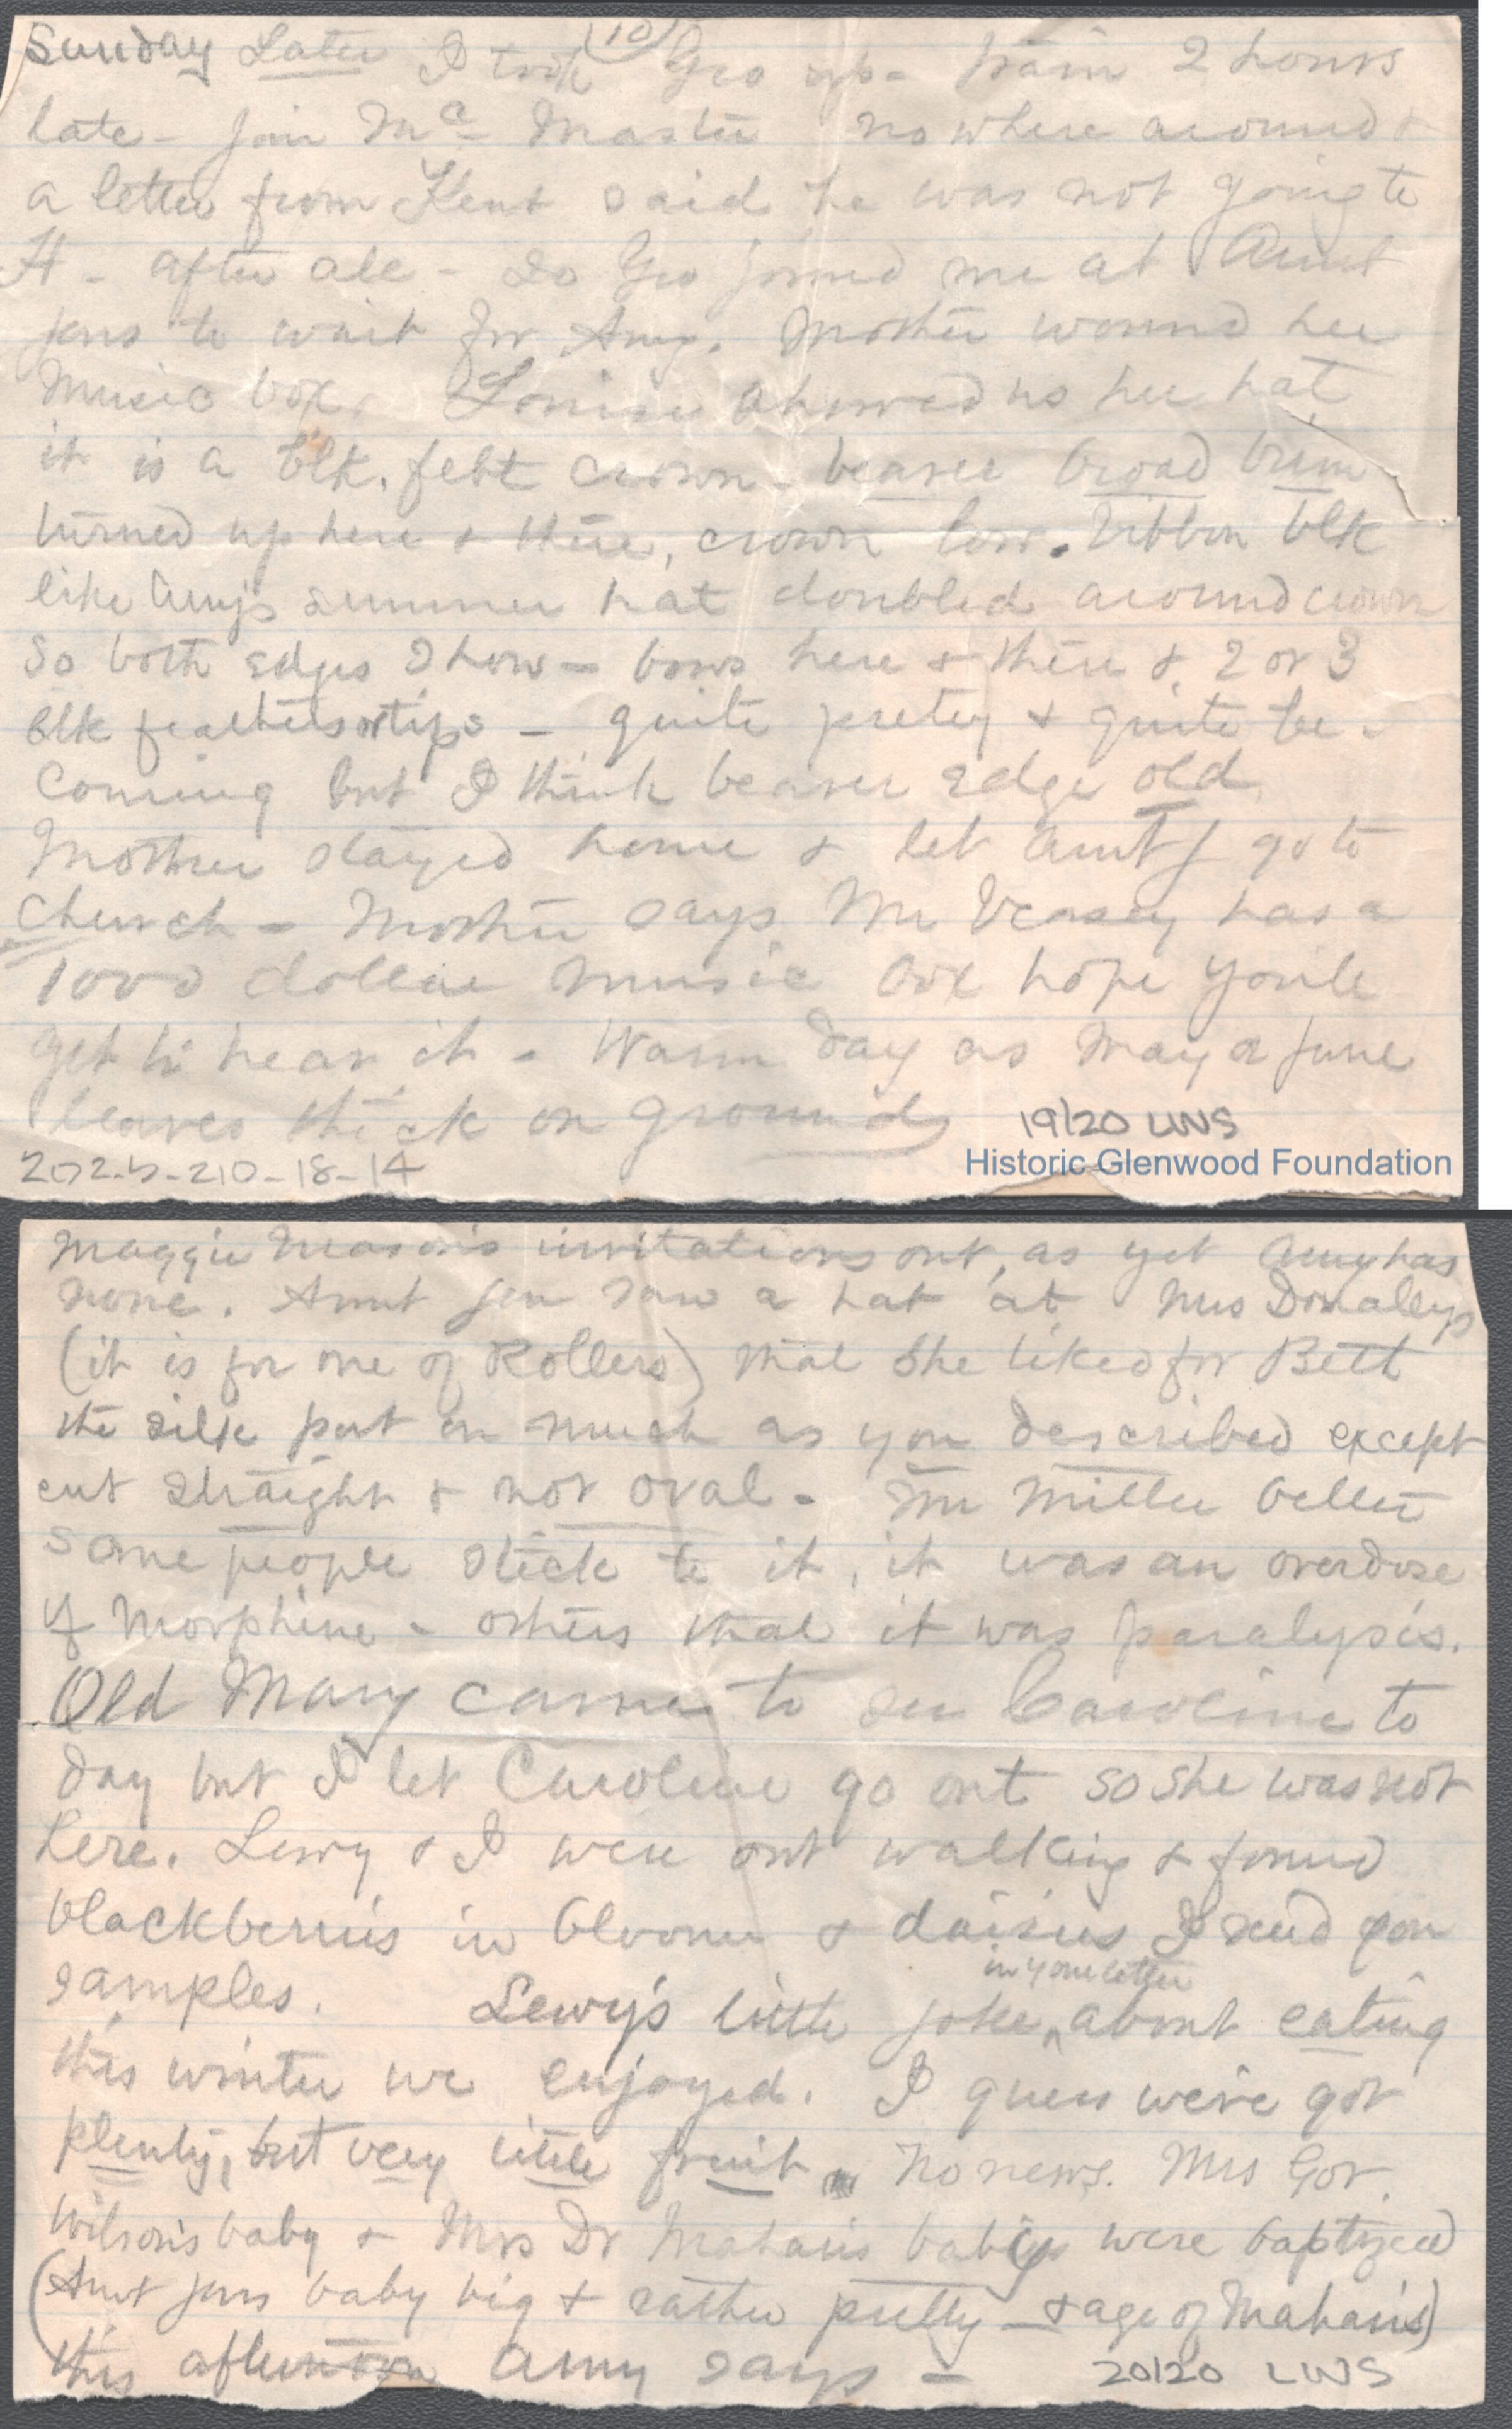 (10)
Sunday Later I took Geo up - train 2 hours
late - Jim McMaster nowhere around &
a letter from Kent said he was not going to
H - after all - So Geo joined me at Aunt
Jens to wait for Amy. Mother wound her
music box. Louise showed us her hat
it is a blk. felt crown - beaver broad brim
turned up here & there, crown low. Ribbon blk
like Amy's summer hat doubled around crown
So both edges show - bows here & there & 2 or 3
blk feathers or tips - quite pretty & quite be-
coming but I think beaver edge old
Mother stayed home & let Aunt J go to
church - Mother says Mr Veasey has a
1000 dollar music box hope you'll
get to hear it - Warm day as May or June
leaves thick on ground
19/20 LWS
202-5-210-18-14
Historic Glenwood Foundation
Maggie Mason's invitations out, as yet Amy has
none. Aunt Jen saw a hat at Mrs Donallys
(it is for one of Rollers) that she liked for Bett
the silk put on much as you described except
cut straight & not oval - Mr Miller better
some people stick to it, it was an overdose
of Morphine - others that it was paralysis.
Old Mary came to see Caroline to
day but I let Caroline go out so she was not
here. Lewy & I were out walking & found
blackberries in bloom & daisies I send you
samples. Lewy's little joke in your letter about eating
this winter we enjoyed. I guess we've got
plenty, but very little fruit. No news. Mrs Gov.
Wilson's baby & Mrs Dr Mahan's baby were baptized
(Aunt Jens baby big & rather pretty - & age of Mahan's)
this afternoon Amy says -
20/20 LWS